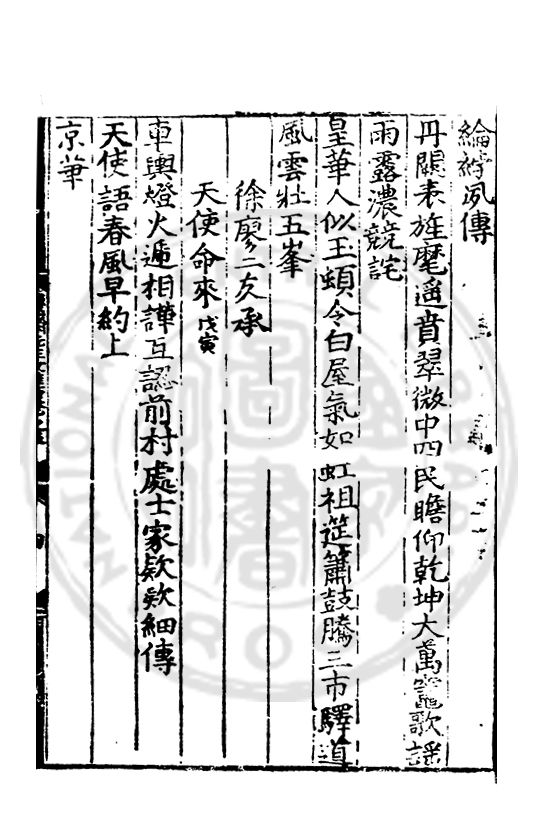 綸綍夙傳
丹闕表旌麾遥賁翠微中四民瞻仰乾坤大萬竈歌謡
雨露濃競詫
皇華人似玉頓令白屋氣如虹祖筵簫鼓騰三市驛道
風雲壯五峯
徐廖二友承
天使命來戊寅
車輿燈火逓相譁互認前村處士家欵欵細傳
天使語春風早約上
京華